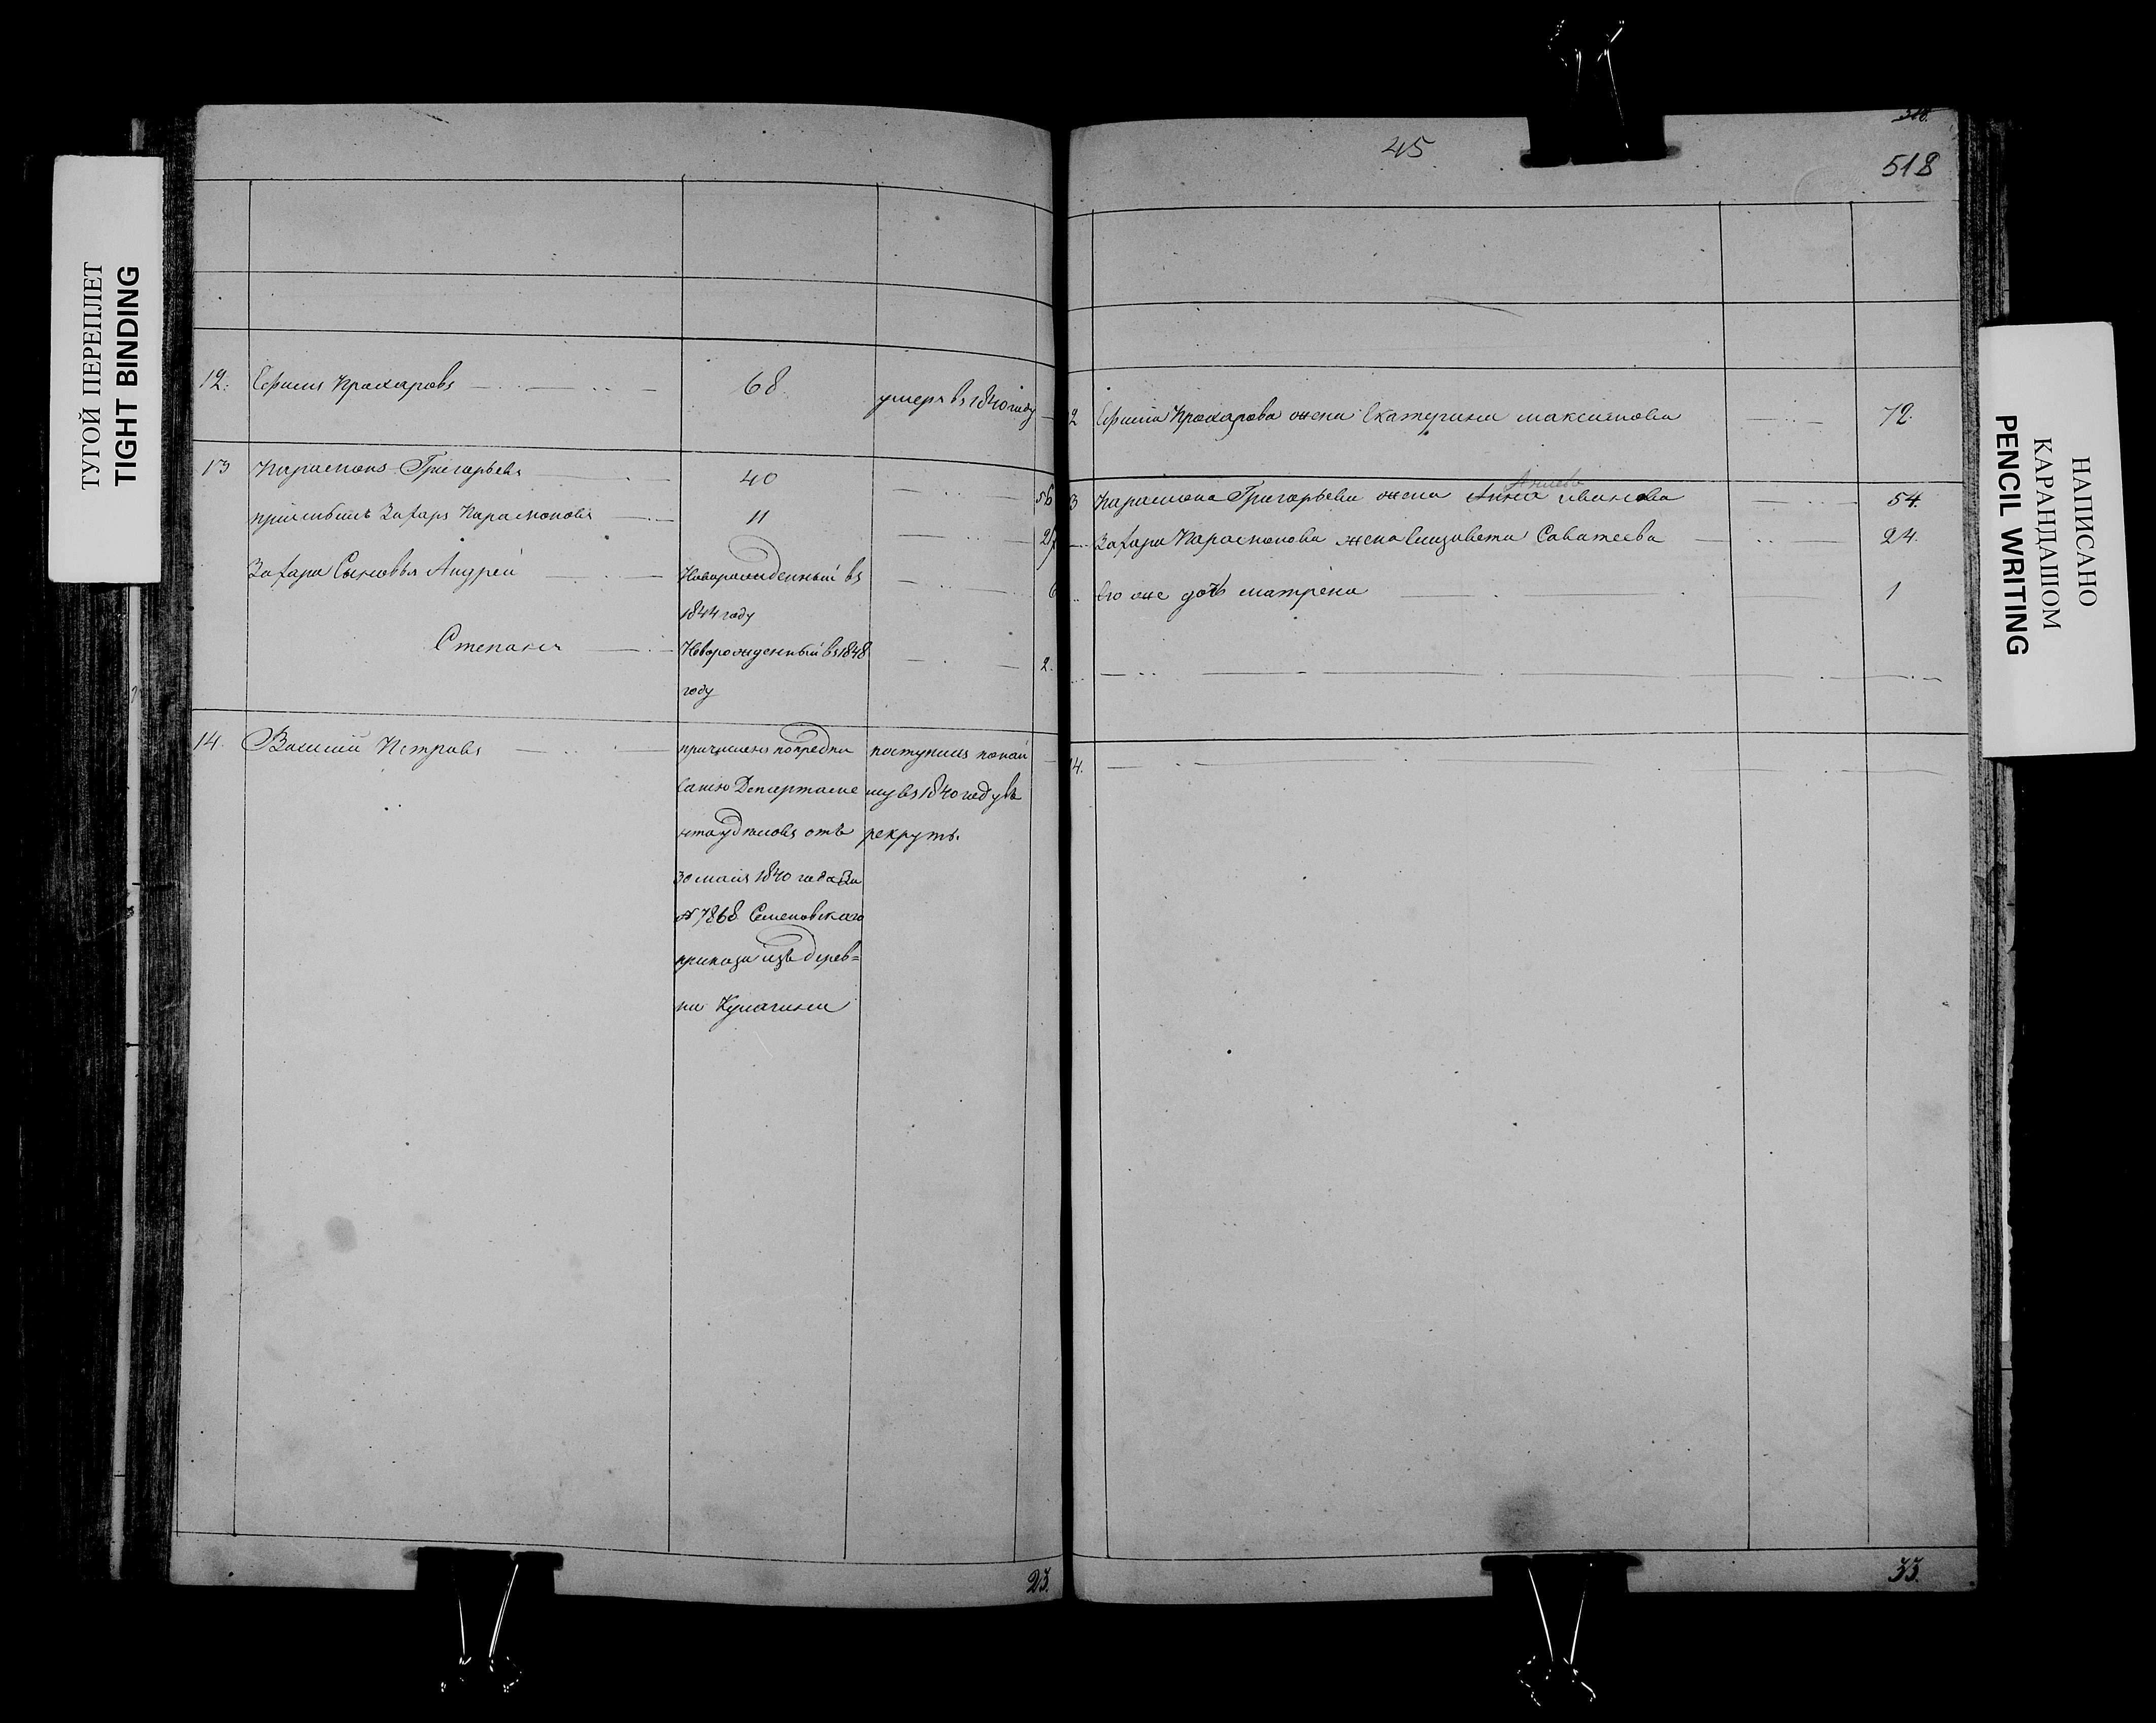 ТУГОЙ ПЕРЕПЛЕТ
TIGHT BINDING
12. Ефимъ Прохаровъ 68. умеръ въ 1840 году
13 Парамонъ Григорьевъ 40 56
приемышъ Захаръ Парамоновъ 11 27
Захара Сыновья Андрей Новорожденный въ 6
1844 году
Степанъ Новорожденный въ 1848 2.
году
14. Василий Петровъ
причисленъ по предпи
санию Департаме
нта удѣловъ отъ
30 мая 1840 года За
№ 7868 Семеновскаго
приказа изъ дерев=
ни
поступилъ по най
му въ 1840 году въ
рекруты.
23.
45
518
2 Ефима Прохарова жена Екатерина максимова 72.
3 Парамона Григорьева жена Анна иванова 54.
Захара Парамонова жена Елизавета Саватеева 24.
Его же дочь матрена 1
14.
33.
НАПИСАНО
КАРАНДАШОМ
PENCIL WRITING